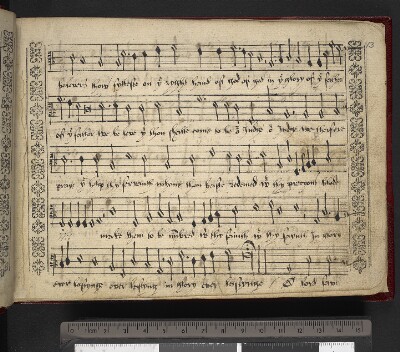 beleevers thow syttest on yͤ ryght hand of god of god in yͤ glory of yͤ father
of yͤ father we be leve yͭ thou shalte come to be oͬ Judge oͬ Judge we therfore
pray yͤ help thy servants whome thou haste redemed wͭ thy precious blod
make them to be nu̅bred wͭ thy saints wͭ thy saints in glory
ever lastynge ever lastynge in glory ever lastynge O lord save